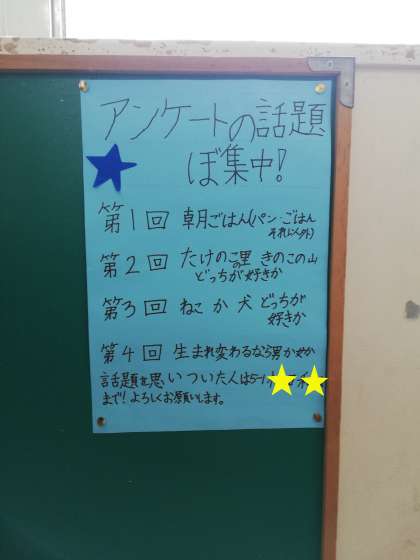 アンケートの話題
ぼ集中!
第1回 朝ごはん(パン・ごはん
それ以外)
第2回 たけのこの里 きのこの山
どっちが好きか
第3回 ねこか犬 どっちが
好きか
第4回 生まれ変わるなら男か女か
話題を思いついた人は5-1
まで!よろしくお願いします。